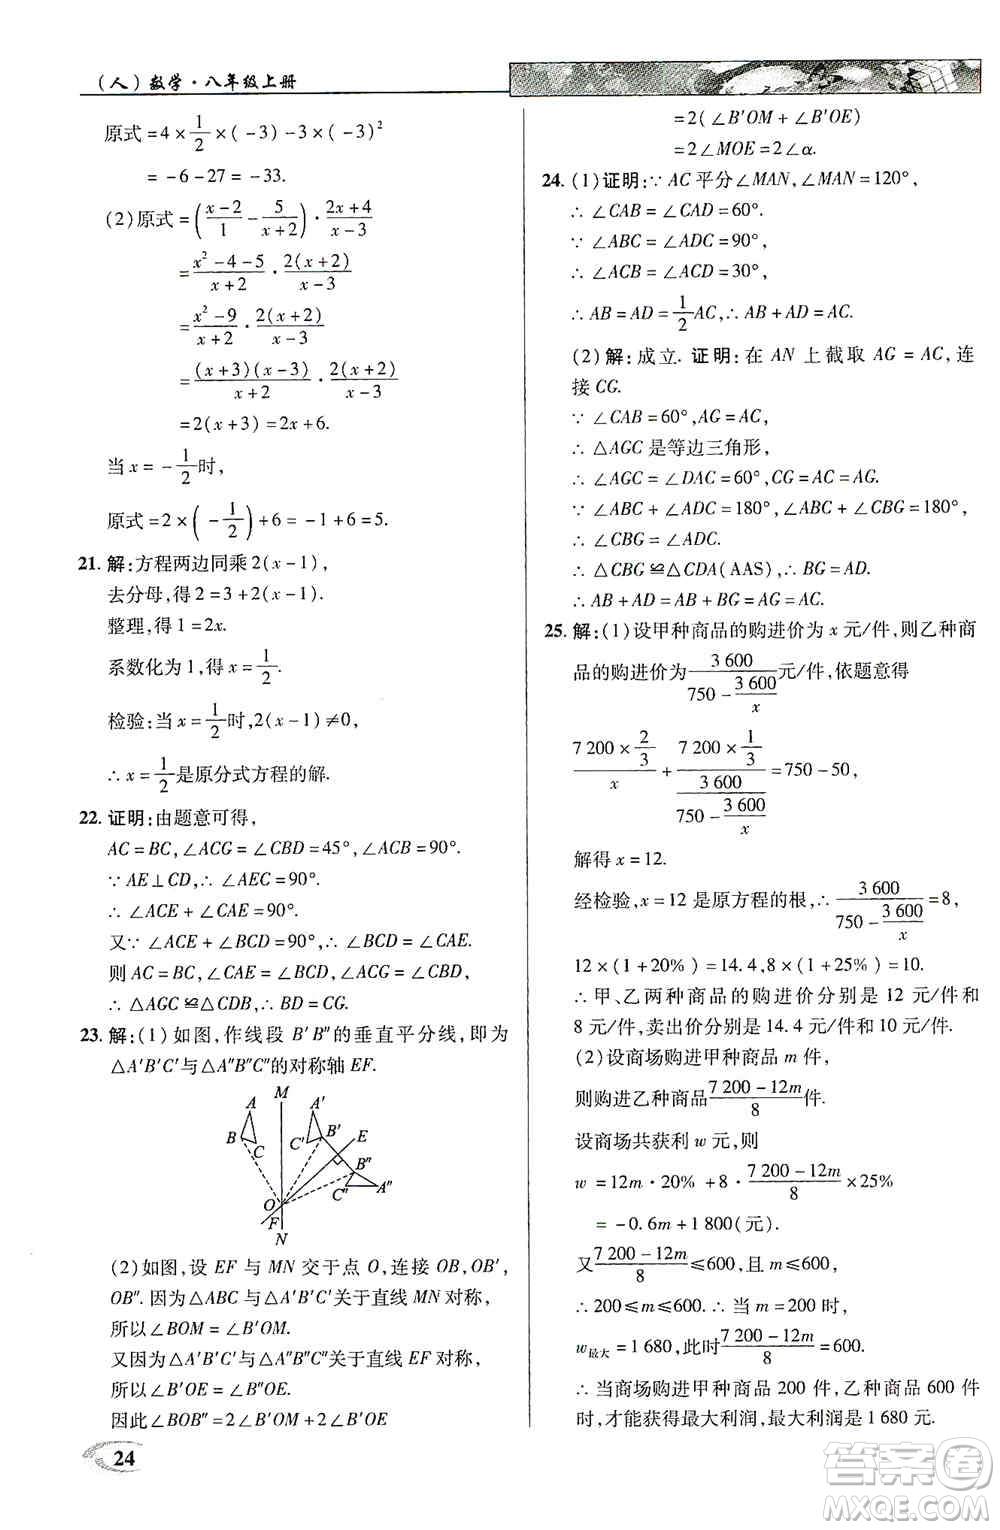 (人)数学·八年级上册
原式=4×1/2×(-3)-3×(-3)²
=-6-27=-33.
(2)原式=((x-2)/1-5/(x+2))·(2x+4)/(x-3)
=(x²-4-5)/(x+2)·2(x+2)/(x-3)
=(x²-9)/(x+2)·2(x+2)/(x-3)
=(x+3)(x-3)/(x+2)·2(x+2)/(x-3)
=2(x+3)=2x+6.
当x=-1/2时,
原式=2×(-1/2)+6=-1+6=5.
21. 解:方程两边同乘2(x-1),
去分母,得2=3+2(x-1).
整理,得1=2x.
系数化为1,得x=1/2.
检验:当x=1/2时,2(x-1)≠0,
∴x=1/2是原分式方程的解.
22. 证明:由题意可得,
AC=BC,∠ACG=∠CBD=45°,∠ACB=90°.
∵AE⊥CD,∴∠AEC=90°.
∴∠ACE+∠CAE=90°.
又∵∠ACE+∠BCD=90°,∴∠BCD=∠CAE.
则AC=BC,∠CAE=∠BCD,∠ACG=∠CBD,
∴△AGC≌△CDB,∴BD=CG.
23. 解:(1)如图,作线段B′B″的垂直平分线,即为
△A′B′C′与△A″B″C″的对称轴EF.
M
A A′
B C C′ B′ E
B″
C″ A″
O
F
N
(2)如图,设EF与MN交于点O,连接OB,OB′,
OB″.因为△ABC与△A′B′C′关于直线MN对称,
所以∠BOM=∠B′OM.
又因为△A′B′C′与△A″B″C″关于直线EF对称,
所以∠B′OE=∠B″OE.
因此∠BOB″=2∠B′OM+2∠B′OE
24
=2(∠B′OM+∠B′OE)
=2∠MOE=2∠α.
24. (1)证明:∵AC平分∠MAN,∠MAN=120°,
∴∠CAB=∠CAD=60°.
∵∠ABC=∠ADC=90°,
∴∠ACB=∠ACD=30°,
∴AB=AD=1/2AC,∴AB+AD=AC.
(2)解:成立.证明:在AN上截取AG=AC,连
接CG.
∵∠CAB=60°,AG=AC,
∴△AGC是等边三角形,
∴∠AGC=∠DAC=60°,CG=AC=AG.
∵∠ABC+∠ADC=180°,∠ABC+∠CBG=180°,
∴∠CBG=∠ADC.
∴△CBG≌△CDA(AAS),∴BG=AD.
∴AB+AD=AB+BG=AG=AC.
25. 解:(1)设甲种商品的购进价为x元/件,则乙种商
品的购进价为3 600/(750-3 600/x)元/件,依题意得
(7 200×2/3)/x+(7 200×1/3)/(3 600/(750-3 600/x))=750-50,
解得x=12.
经检验,x=12是原方程的根,∴3 600/(750-3 600/x)=8,
12×(1+20%)=14.4,8×(1+25%)=10.
∴甲、乙两种商品的购进价分别是12元/件和
8元/件,卖出价分别是14.4元/件和10元/件.
(2)设商场购进甲种商品m件,
则购进乙种商品(7 200-12m)/8件.
设商场共获利w元,则
w=12m·20%+8·(7 200-12m)/8×25%
=-0.6m+1 800(元).
又(7 200-12m)/8≤600,且m≤600,
∴200≤m≤600.∴当m=200时,
w最大=1 680,此时(7 200-12m)/8=600.
∴当商场购进甲种商品200件,乙种商品600件
时,才能获得最大利润,最大利润是1 680元.
答案卷
MXQE.COM